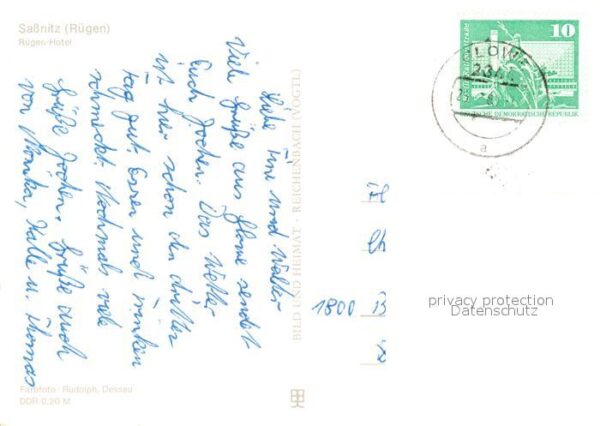 Saßnitz (Rügen)
Rügen-Hotel
Liebe Tine und Walter
Viele Grüße aus Glowe sendet
Euch Jochen. Das Wetter
ist hier schon den dritten
Tag gut. Essen und Trinken
schmeckt. Nochmals viele
Grüße Jochen. Grüße auch
von Monika, Kalle u. Thomas
BILD UND HEIMAT · REICHENBACH (VOGTL)
Farbfoto: Rudolph, Dessau
DDR 0,20 M
10
DEUTSCHE DEMOKRATISCHE REPUBLIK
GLOWE
a
H
Ch
1800 B
privacy protection
Datenschutz